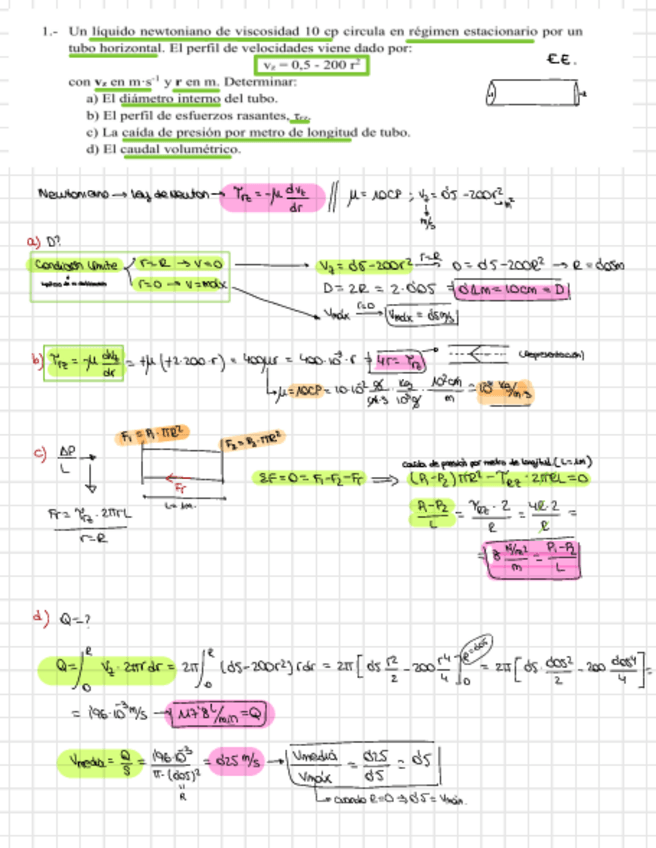 1.- Un líquido newtoniano de viscosidad 10 cp circula en régimen estacionario por un
tubo horizontal. El perfil de velocidades viene dado por:
v_z = 0,5 - 200 r²
E.E.
con v_z en m·s⁻¹ y r en m. Determinar:
a) El diámetro interno del tubo.
b) El perfil de esfuerzos rasantes, τ_rz.
c) La caída de presión por metro de longitud de tubo.
d) El caudal volumétrico.
Newtoniano → Ley de Newton → τ_rz = -μ dv_z/dr // μ = 10CP ; v_z = 0'5 - 200r²
m/s
a) D?
Condición límite { r=R → v=0
r=0 → v=máx
v_z = 0'5 - 200r² r=R → 0 = 0'5 - 200R² → R = 0'05m
D = 2R = 2·0'05 = 0'1m = 10cm = D
v_máx r=0 → v_máx = 0'5m/s
b) τ_rz = -μ dv_z/dr = +μ (+2·200·r) = 400μr = 400·10⁻²·r = 4r = τ_rz
(Representación)
μ = 10CP = 10·10⁻²
c) ΔP/L
F₁ = P₁·πR²
F₂ = P₂·πR²
Fr
L = 1m
Fr = τ_rz · 2πrL
r=R
ΣF = 0 = F₁ - F₂ - Fr ⟹ (P₁-P₂)πR² - τ_Rz · 2πRL = 0
caída de presión por metro de longitud (L=1m)
P₁-P₂/L = τ_Rz · 2/R = 4R·2/R =
= 8 N/m²/m = P₁-P₂/L
d) Q=?
Q = ∫₀ᴿ v_z · 2πr dr = 2π ∫₀ᴿ (0'5 - 200r²) r dr = 2π [0'5 r²/2 - 200 r⁴/4]₀ R=0'05 = 2π [0'5 · 0'05²/2 - 200 0'05⁴/4] =
= 1'96·10⁻³ m³/s → 117'8 L/min = Q
v_media = Q/S = 1'96·10⁻³/π·(0'05)² = 0'25 m/s → v_media/v_máx = 0'25/0'5 = 0'5
R
cuando R=0 → 0'5 = v_máx.